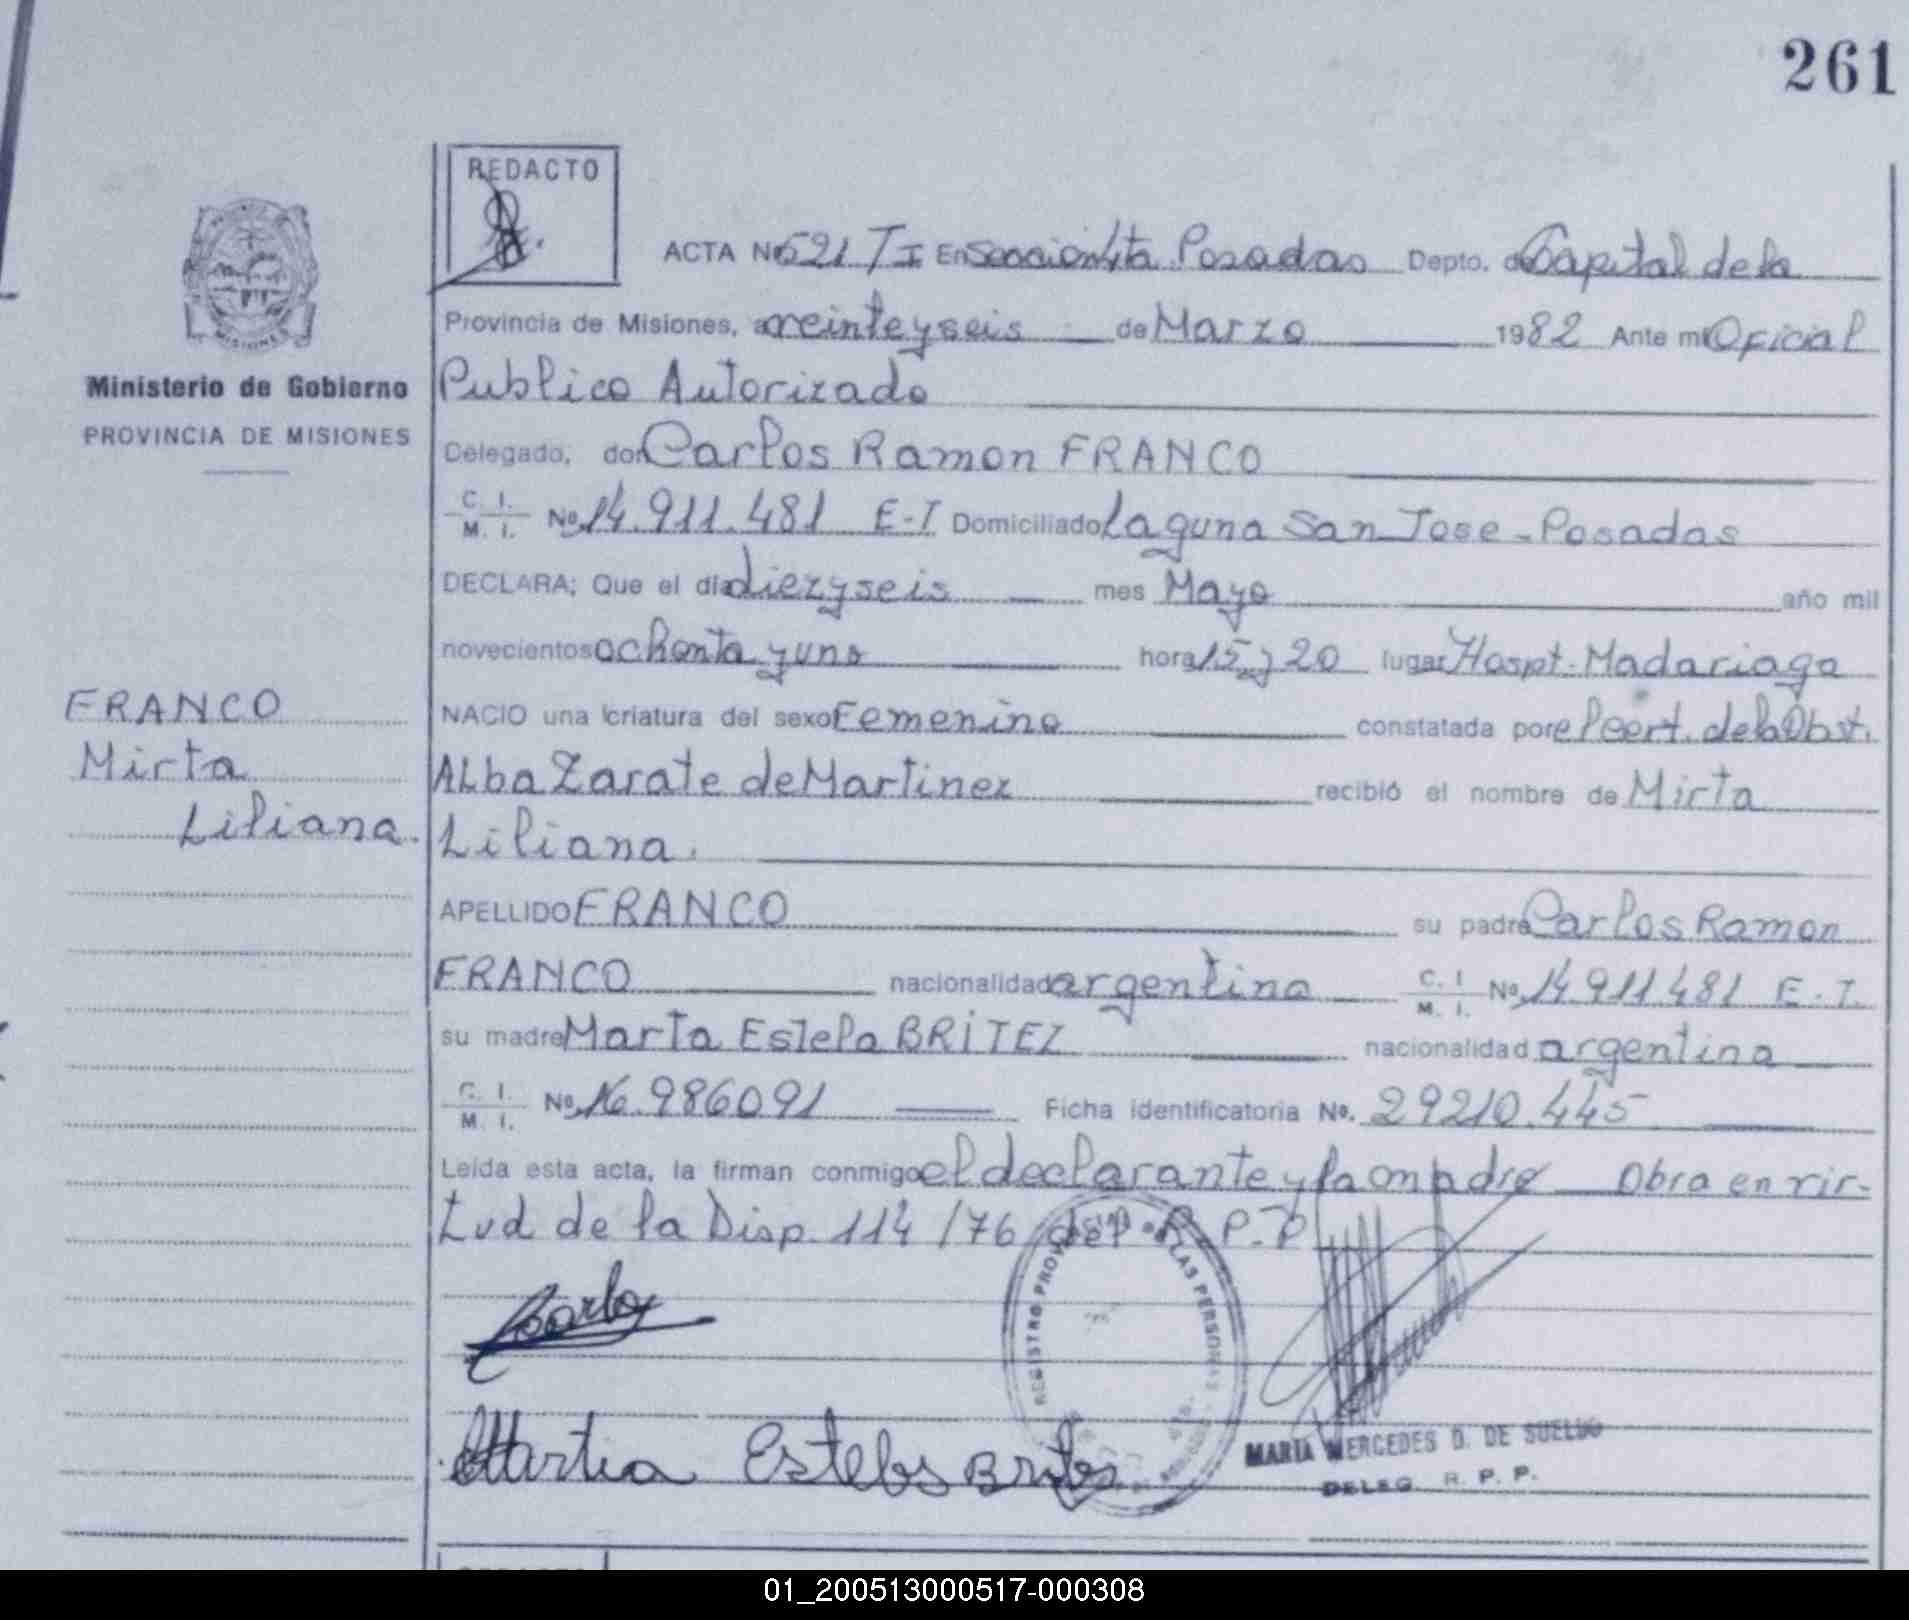 261
REDACTO
ACTA Nº 521 TI En Seccion 4ta Posadas Depto. de Capital de la
Provincia de Misiones, a veinteyseis de Marzo 1982 Ante mi Oficial
Publico Autorizado
Delegado; don Carlos Ramon FRANCO
C. I.
M. I. No. 14.911.481 E-T Domiciliado Laguna San Jose - Posadas
DECLARA; Que el dia diezyseis mes Mayo año mil
novecientos ochenta y uno hora 15 y 20 lugar Hospt. Madariaga
NACIO una criatura del sexo Femenino constatada por el cert. de la Obst.
Alba Zarate de Martinez recibió el nombre de Mirta
Liliana.
APELLIDO FRANCO su padre Carlos Ramon
FRANCO nacionalidad argentina C. I
M. I. No. 14.911.481 E.T.
su madre Marta Estela BRITEZ nacionalidad argentina
C. I.
M. I. No. 16.986091 Ficha identificatoria No. 29210.445
Leida esta acta, la firman conmigo el declarante y la madre Obra en vir-
tud de la Disp. 114/76 del R.P.P
Carlos
Martta Estelbs Brites
REGISTRO PROV DE LAS PERSONAS
MARIA MERCEDES D. DE SUELDO
DELEG. R. P. P.
MISIONES
Ministerio de Gobierno
PROVINCIA DE MISIONES
FRANCO
Mirta
Liliana.
01_200513000517-000308